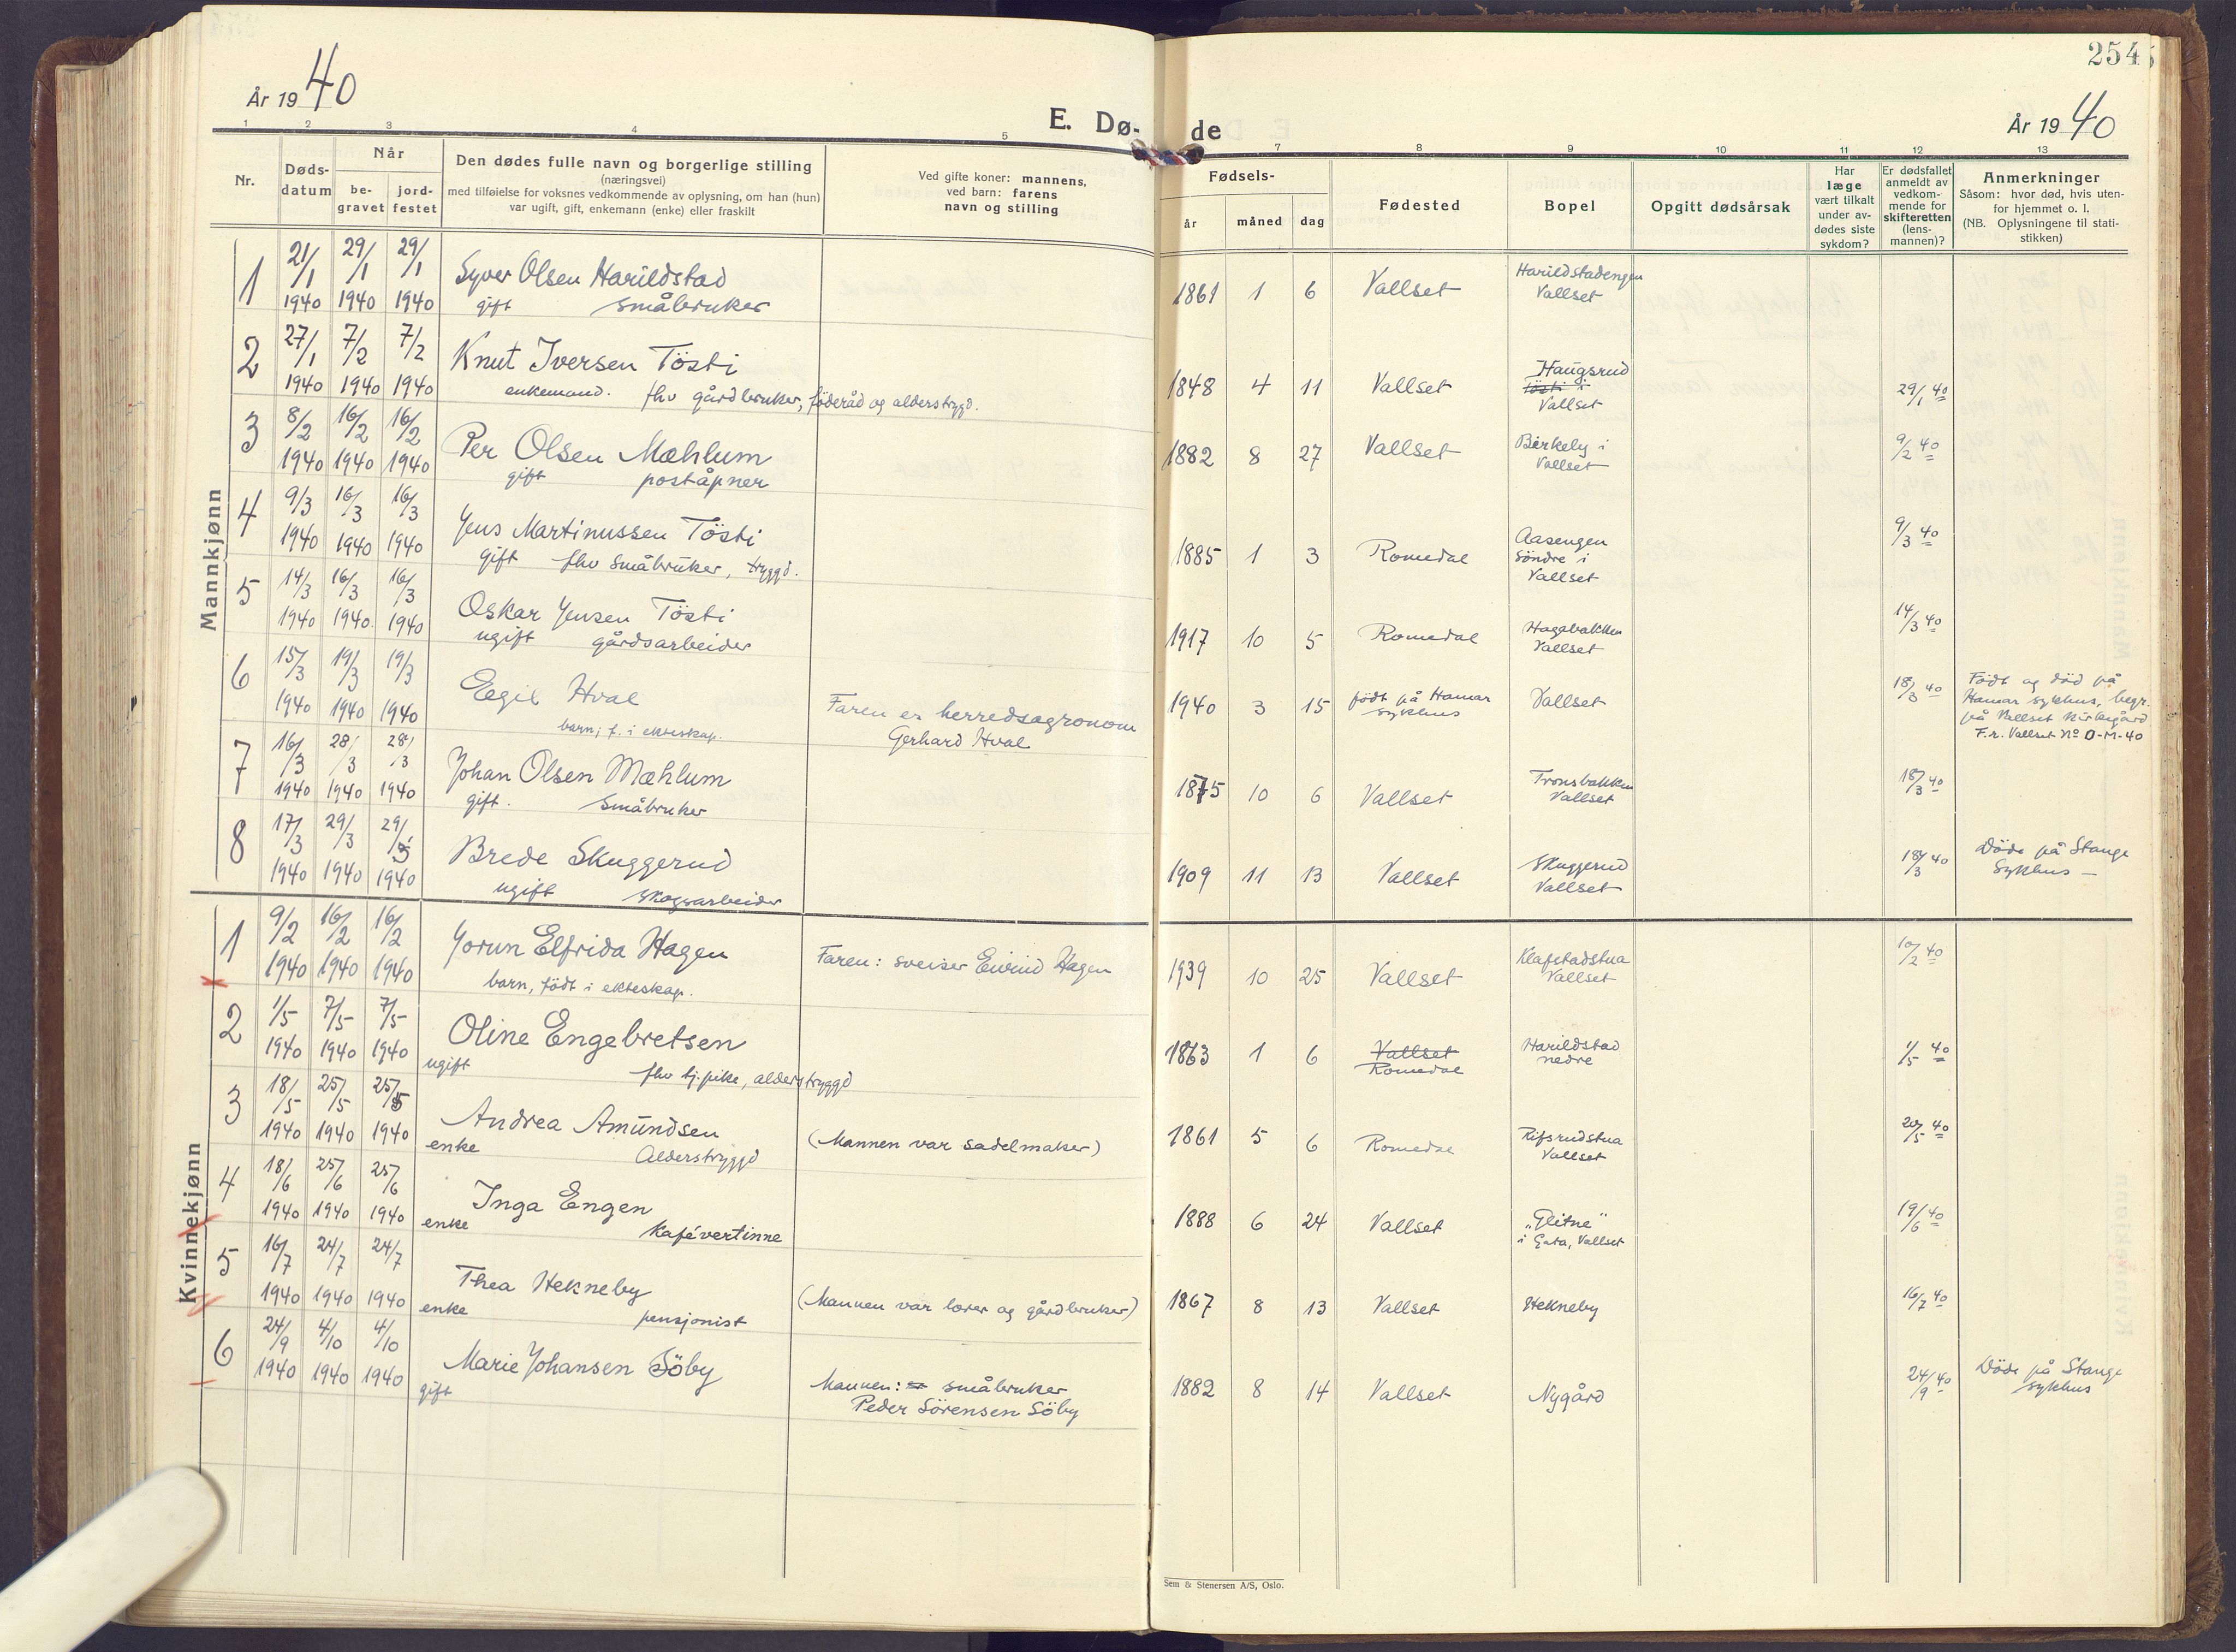 254
År 1940
E. Dø-
de
År 1940
1 2 3 4 5 7 8 9 10 11 12 13
Nr.
Døds-
datum
Når
be-
gravet
jord-
festet
Den dødes fulle navn og borgerlige stilling
(næringsvei)
med tilføielse for voksnes vedkommende av oplysning, om han (hun)
var ugift, gift, enkemann (enke) eller fraskilt
Ved gifte koner: mannens,
ved barn: farens
navn og stilling
Fødsels-
år måned dag
Fødested
Bopel
Opgitt dødsårsak
Har
læge
vært tilkalt
under av-
dødes siste
sykdom?
Er dødsfallet
anmeldt av
vedkom-
mende for
skifteretten
(lens-
mannen)?
Anmerkninger
Såsom: hvor død, hvis uten-
for hjemmet o. l.
(NB. Oplysningene til stati-
stikken)
Mannkjønn
1 21/1 1940 29/1 1940 29/1 1940 Syver Olsen Harildstad
gift småbruker
1861 1 6 Vallset Harildstadengen
Vallset
2 27/1 1940 7/2 1940 7/2 1940 Knut Iversen Tösti
enkemand. fhv gårdbruker, föderåd og alderstrygd.
1848 4 11 Vallset Haugsrud
Tösti i
Vallset
29/1 40
3 8/2 1940 16/2 1940 16/2 1940 Per Olsen Mæhlum
gift poståpner
1882 8 27 Vallset Birkely i
Vallset
9/2 40
4 9/3 1940 16/3 1940 16/3 1940 Jens Martinussen Tösti
gift fhv småbruker, tryggd.
1885 1 3 Romedal Aasengen
söndre i
Vallset
9/3 40
5 14/3 1940 16/3 1940 16/3 1940 Oskar Jensen Tösti
ugift gårdsarbeider
1917 10 5 Romedal Hagabakken
Vallset
14/3 40
6 15/3 1940 19/3 1940 19/3 1940 Eegil Hval
barn; f. i ekteskap.
Faren er herredsagronom
Gerhard Hval
1940 3 15 født på Hamar
sykehus
Vallset
18/3 40
Født og død på
Hamar sykhus, begr.
på Vallset kirkegård
F.r. Vallset No 0-M-40
7 16/3 1940 28/3 1940 28/3 1940 Johan Olsen Mæhlum
gift. småbruker
1875 10 6 Vallset Tronsbakken
Vallset
18/3 40
8 17/3 1940 29/3 1940 29/3 1940 Brede Skuggerud
ugift skogsarbeider
1909 11 13 Vallset Skuggerud
Vallset
18/3 40
Döde på Stange
Sykhus —
Kvinnekjønn
1 9/2 1940 16/2 1940 16/2 1940 Jorun Elfrida Hagen
barn, födt i ekteskap.
Faren: sveiser Eivind Hagen
1939 10 25 Vallset Klafstadstua
Vallset
10/2 40
2 1/5 1940 7/5 1940 7/5 1940 Oline Engebretsen
ugift fhv tj.pike, alderstryggd
1863 1 6 Vallset
Romedal
Harildstad
nedre
1/5 40
3 18/5 1940 25/5 1940 25/5 1940 Andrea Amundsen
enke Alderstryggd
(Mannen var sadelmaker)
1861 5 6 Romedal Rifsrudstua
Vallset
20/5 40
4 18/6 1940 25/6 1940 25/6 1940 Inga Engen
enke Kafévertinne
1888 6 24 Vallset „Glitne"
i Gata, Vallset
19/6 40
5 16/7 1940 24/7 1940 24/7 1940 Thea Hekneby
enke pensjonist
(Mannen var lærer og gårdbruker)
1867 8 13 Vallset Hekneby
16/7 40
6 24/9 1940 4/10 1940 4/10 1940 Marie Johansen Söby
gift
Mannen: småbruker
Peder Sörensen Söby
1882 8 14 Vallset Nygård
24/9 40
Döde på Stange
sykhus
Sem & Stenersen A/S, Oslo.